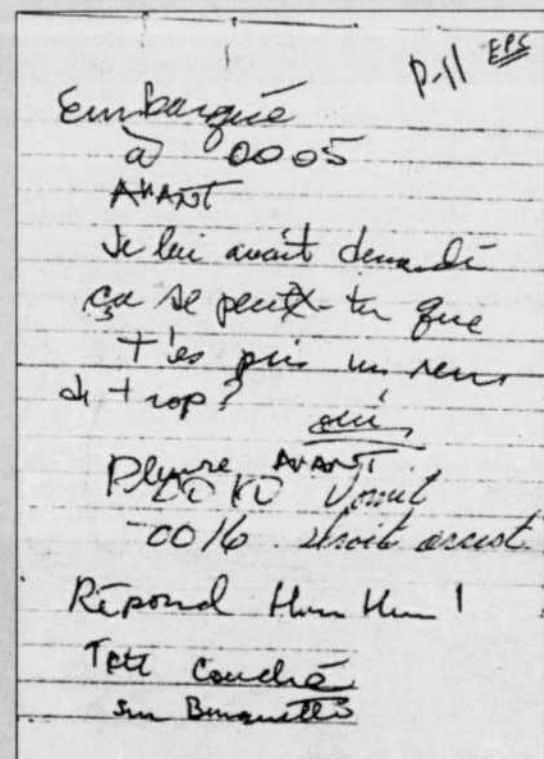 P-11 EPS
Embarqué
à 0005
AVANT
Je lui avait demandé
ça se peux-tu que
t'es pris un
de trop?
oui
Pleure AVANT
Vomit
0016 droit arrest
Répond Hum Hum!
Tête Couché
sur Banquette